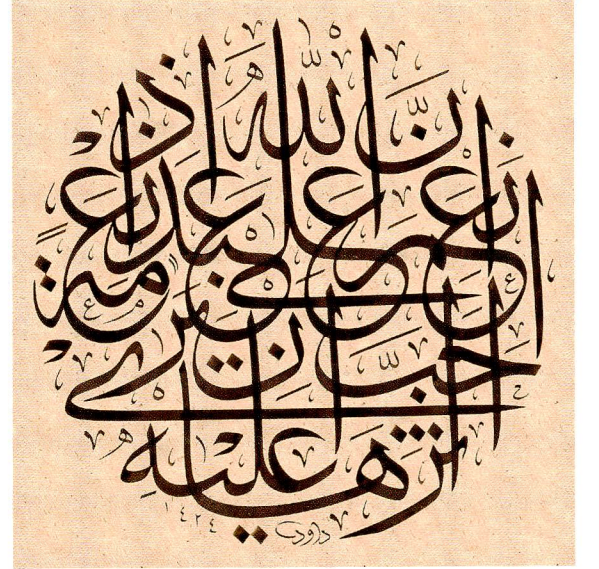 إنّ الله إذا
أنعم على عبد نعمة
أحبّ أن ترى
أثرها عليه
داود ١٤٢٤